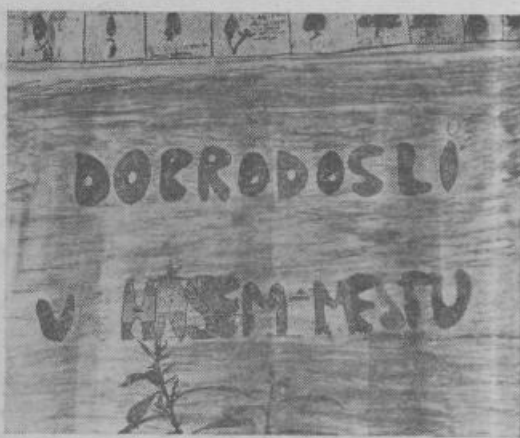 DOBRODOSLI
V NAŠEM MESTU